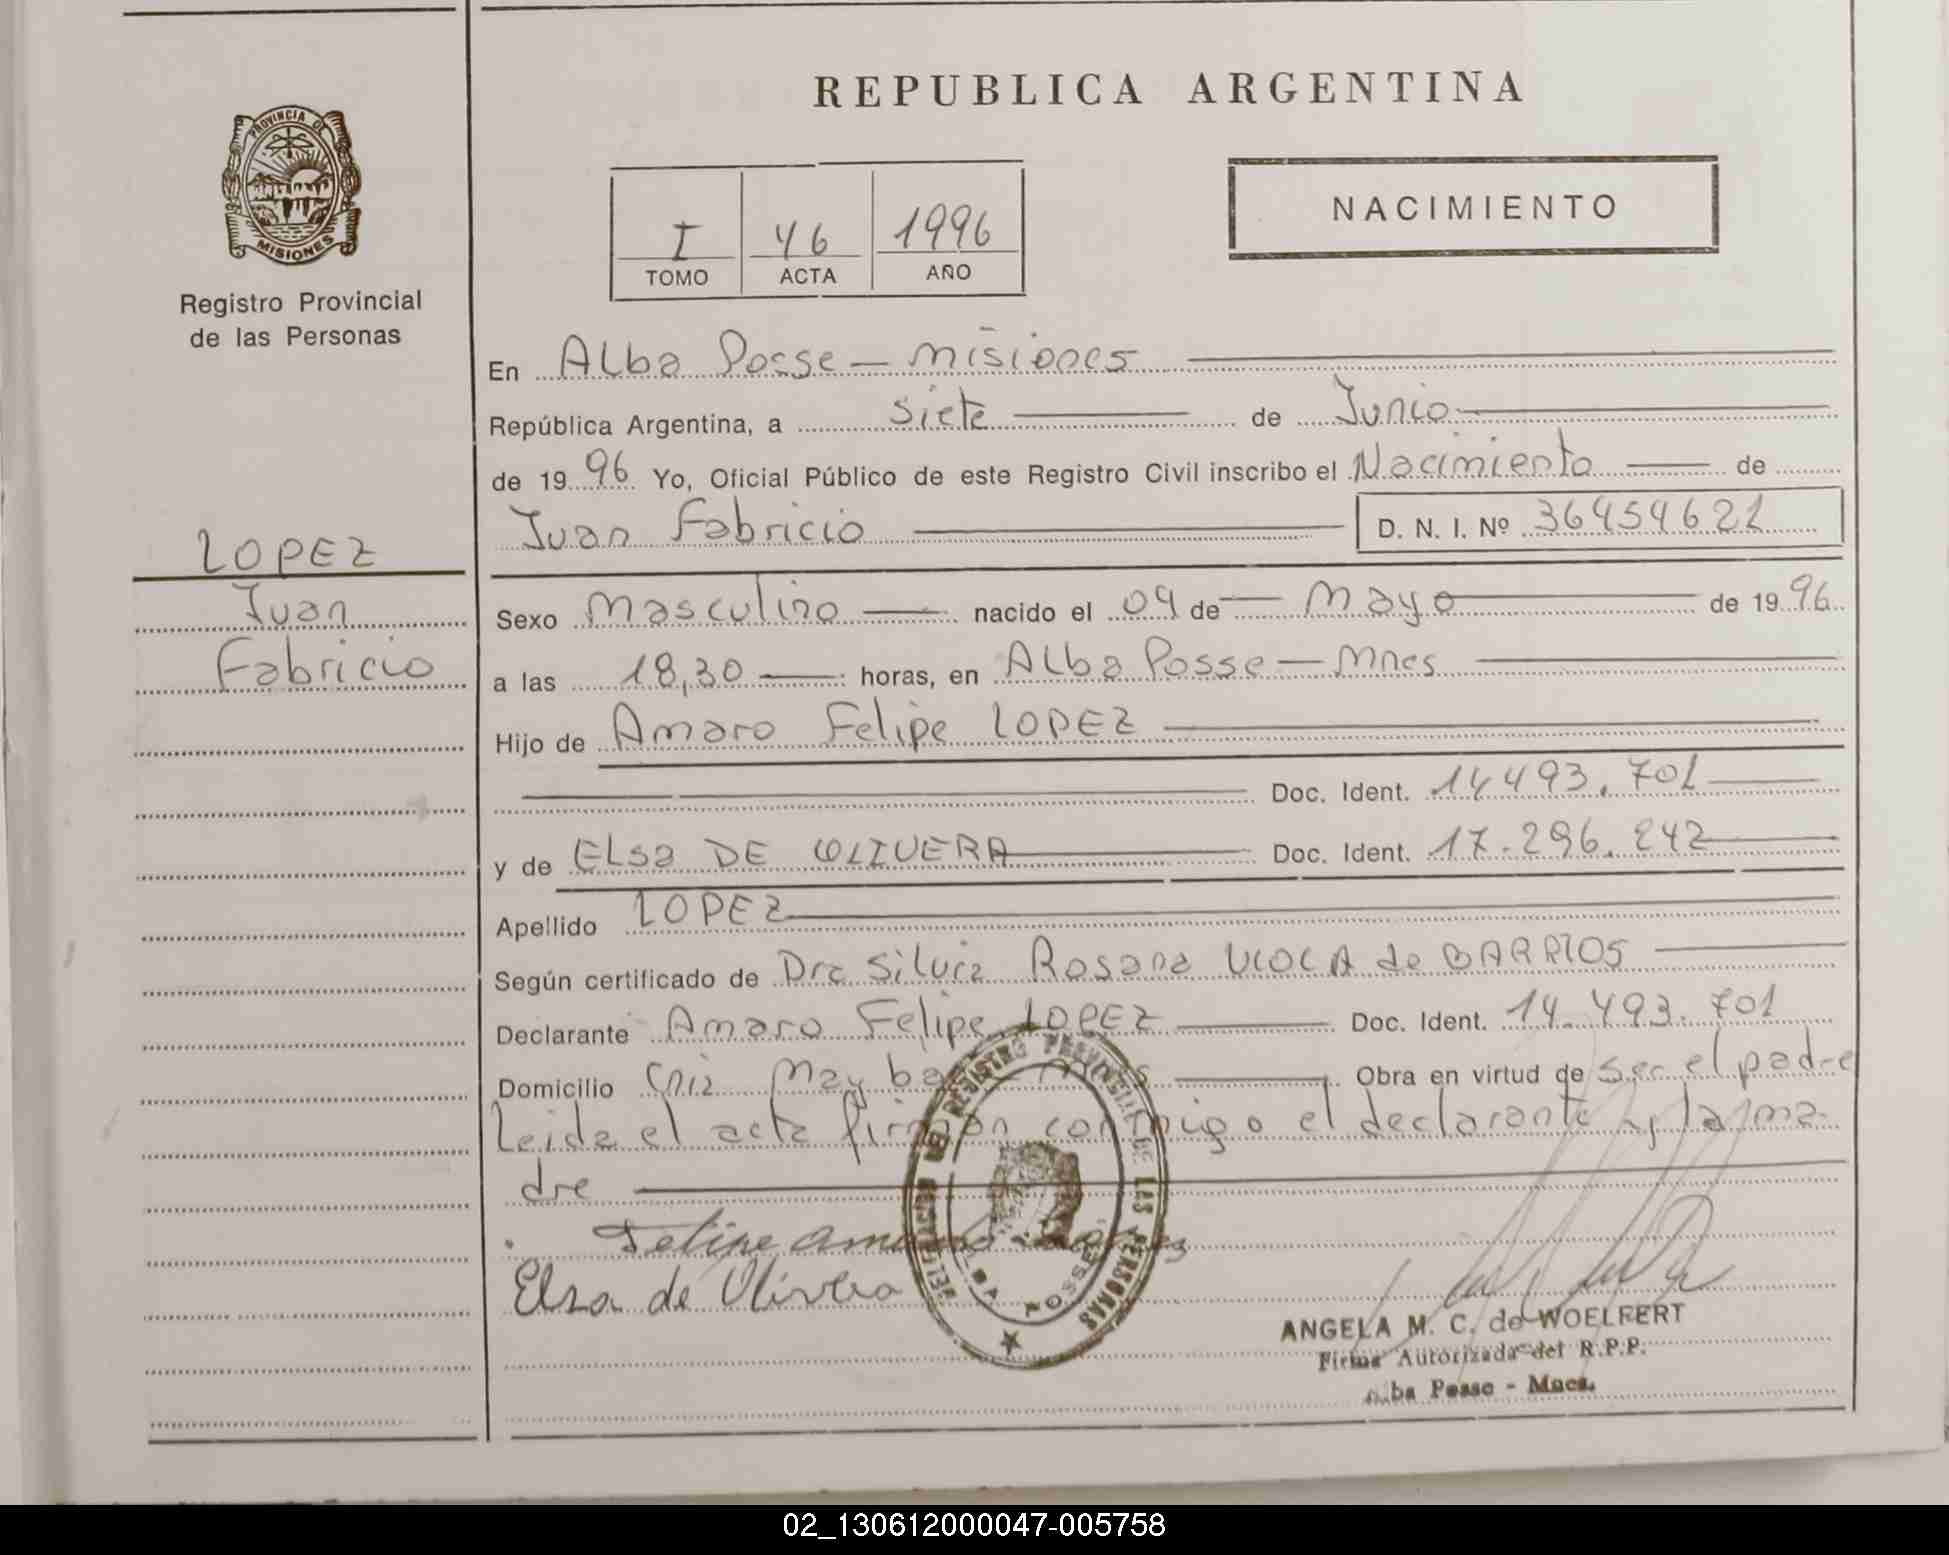 REPUBLICA ARGENTINA
PROVINCIA DE
MISIONES
Registro Provincial
de las Personas
I 46 1996
TOMO ACTA AÑO
NACIMIENTO
LOPEZ
Juan
Fabricio
En Alba Posse — Misiones
República Argentina, a siete de Junio
de 1996 Yo, Oficial Público de este Registro Civil inscribo el Nacimiento de
Juan Fabricio D. N. I. Nº 36454621
Sexo Masculino nacido el 09 de Mayo de 1996
a las 18,30 horas, en Alba Posse — Mnes
Hijo de Amaro Felipe LOPEZ
Doc. Ident. 14493.701
y de ELSA DE OLIVERA Doc. Ident. 17.296.242
Apellido LOPEZ
Según certificado de Dra Silvia Rosana VIOLA de BARRIOS
Declarante Amaro Felipe LOPEZ Doc. Ident. 14.493.701
Domicilio Obra en virtud de ser el padre
Leida el acta firman conmigo el declarante y la ma
dre
Felipe
Elsa de Olivera
DELEGACION DEL REGISTRO PROVINCIAL DE LAS PERSONAS
ALBA POSSE
ANGELA M. C. de WOELFERT
Firma Autorizada del R.P.P.
Alba Posse - Mnes.
02_130612000047-005758